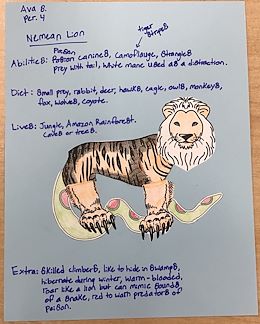 Ava B.
Per. 4
Nemean Lion
tiger
stripes
Poison
Abilities: Poison canines, Camoflauge, Strangles
prey with tail, white mane used as a distraction.
Diet: Small prey, rabbit, deer, hawks, eagle, owls, monkeys,
fox, wolves, coyote.
Lives: Jungle, Amazon Rainforest.
caves or trees.
Extra: Skilled climbers, like to hide in swamps,
hibernate during winter, warm-blooded,
roar like a lion but can mimic sounds
of a snake, red to warn predators of
poison.